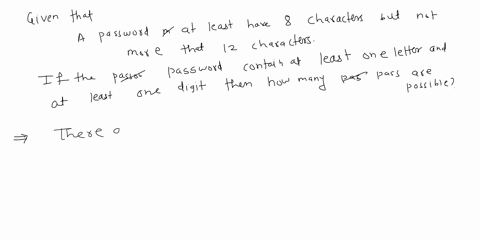 Given that
A password at least have 8 characters but not
more that 12 characters.
If the password contain at least one letter and
at least one digit them how many pass are
possible?
⇒ There o